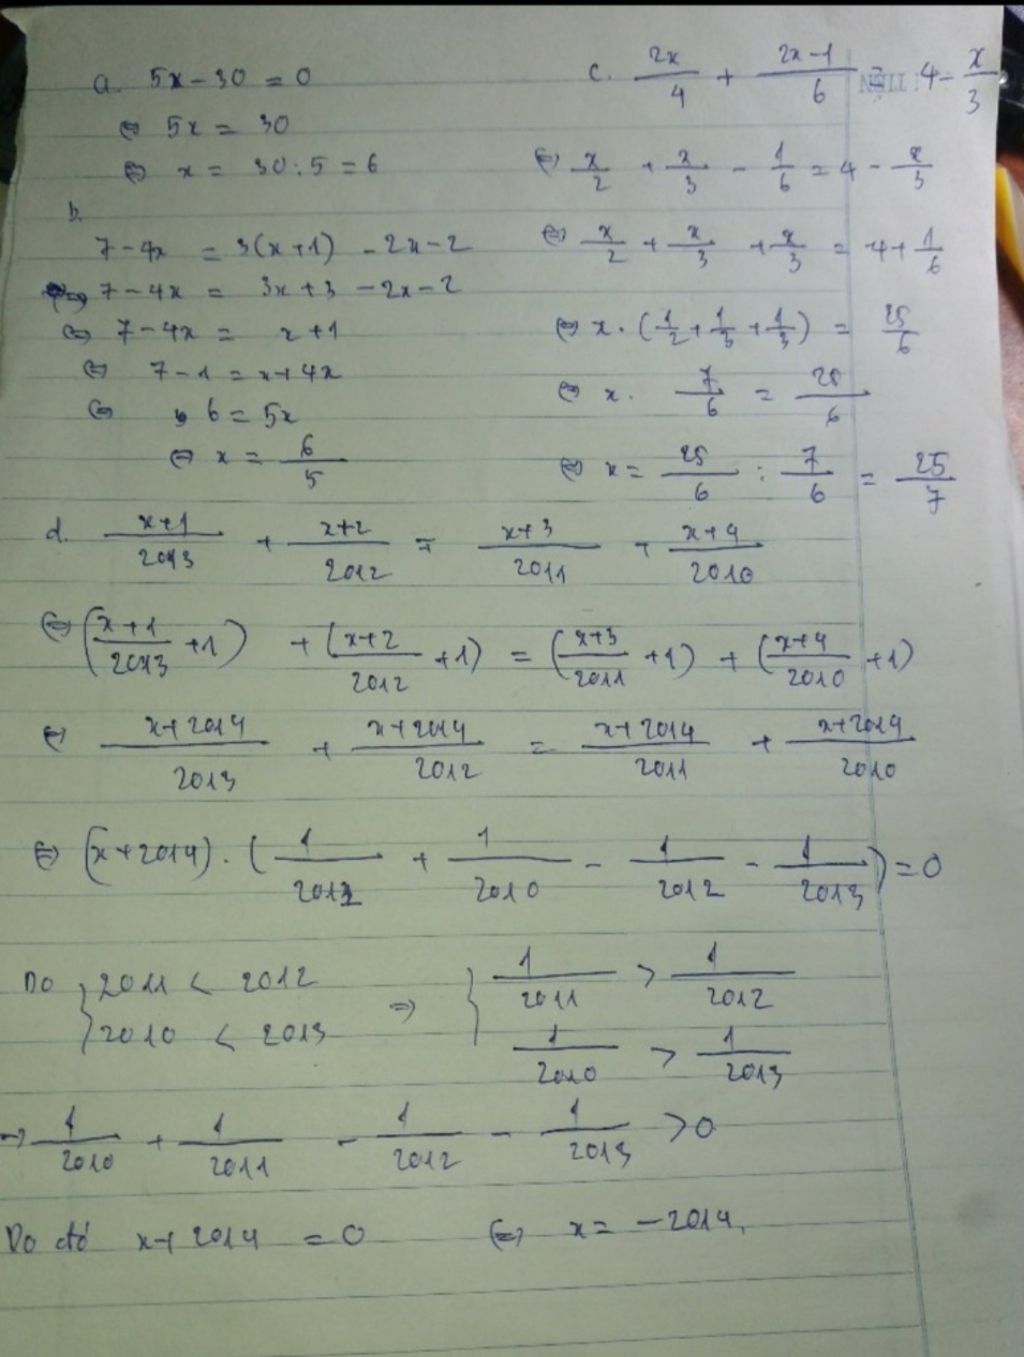 a. 5x - 30 = 0
⇔ 5x = 30
⇔ x = 30 : 5 = 6
b.
7 - 4x = 3(x+1) - 2x - 2
⇔ 7 - 4x = 3x + 3 - 2x - 2
⇔ 7 - 4x = x + 1
⇔ 7 - 1 = x + 4x
⇔ 6 = 5x
⇔ x = 6/5
c. 2x/4 + (2x-1)/6 = 4 - x/3
⇔ x/2 + x/3 - 1/6 = 4 - x/3
⇔ x/2 + x/3 + x/3 = 4 + 1/6
⇔ x . (1/2 + 1/3 + 1/3) = 25/6
⇔ x . 7/6 = 25/6
⇔ x = 25/6 : 7/6 = 25/7
d. (x+1)/2013 + (x+2)/2012 = (x+3)/2011 + (x+4)/2010
⇔ ((x+1)/2013 + 1) + ((x+2)/2012 + 1) = ((x+3)/2011 + 1) + ((x+4)/2010 + 1)
⇔ (x+2014)/2013 + (x+2014)/2012 = (x+2014)/2011 + (x+2014)/2010
⇔ (x+2014) . (1/2011 + 1/2010 - 1/2012 - 1/2013) = 0
Do { 2011 < 2012 ⇒ { 1/2011 > 1/2012
2010 < 2013 1/2010 > 1/2013
⇒ 1/2010 + 1/2011 - 1/2012 - 1/2013 > 0
Do đó x + 2014 = 0 ⇔ x = -2014.